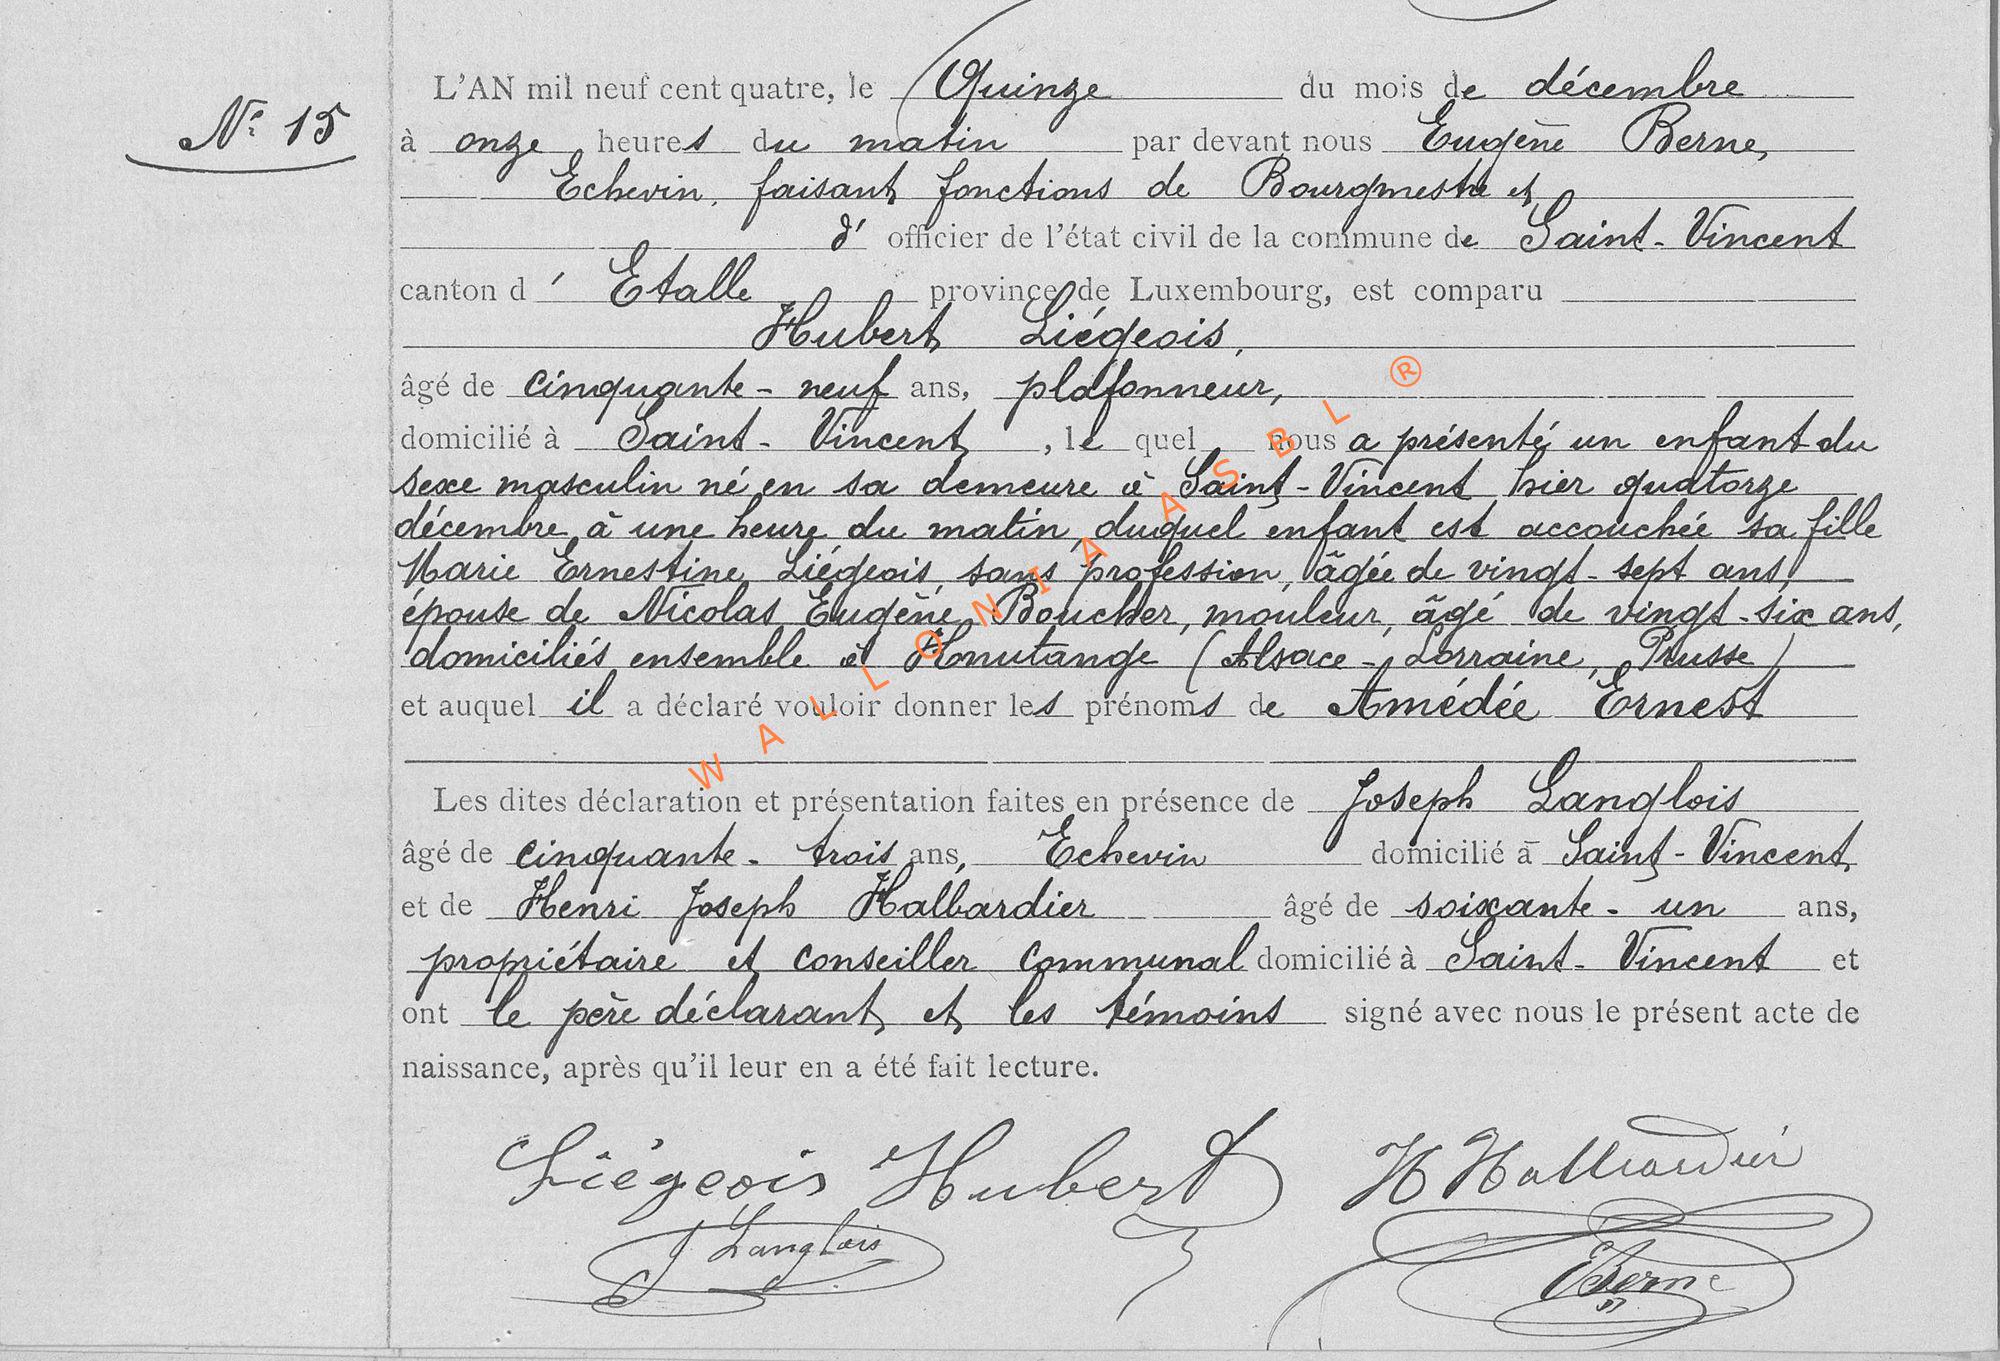 N° 15
L'AN mil neuf cent quatre, le Quinze du mois de décembre
à onze heures du matin par devant nous Eugène Berne,
Echevin, faisant fonctions de Bourgmestre et
d' officier de l'état civil de la commune de Saint-Vincent
canton d' Etalle province de Luxembourg, est comparu
Hubert Liégeois,
âgé de cinquante-neuf ans, plafonneur,
domicilié à Saint-Vincent, le quel nous a présenté un enfant du
sexe masculin né en sa demeure à Saint-Vincent hier quatorze
décembre à une heure du matin, duquel enfant est accouchée sa fille
Marie Ernestine Liégeois, sans profession, âgée de vingt-sept ans,
épouse de Nicolas Eugène Boucher, mouleur, âgé de vingt-six ans,
domiciliés ensemble à Knutange (Alsace-Lorraine, Prusse)
et auquel il a déclaré vouloir donner les prénoms de Amédée Ernest
Les dites déclaration et présentation faites en présence de Joseph Langlois
âgé de cinquante-trois ans, Echevin domicilié à Saint-Vincent
et de Henri Joseph Halbardier âgé de soixante-un ans,
propriétaire et conseiller communal domicilié à Saint-Vincent et
ont le père déclarant et les témoins signé avec nous le présent acte de
naissance, après qu'il leur en a été fait lecture.
Liégeois Hubert H Halbardier
J Langlois EBerne
WALLONIA ASBL ®